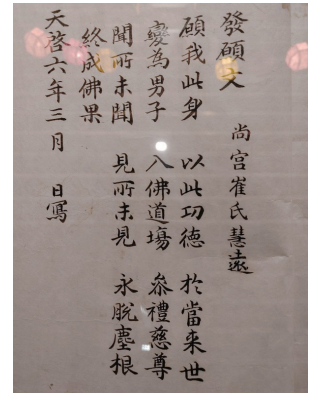 發願文
尚宮崔氏慧遠
願我此身 以此功德 於當来世
變為男子 入佛道場 叅禮慈尊
聞所未聞 見所未見 永脫塵根
終成佛果
天啓六年三月 日寫